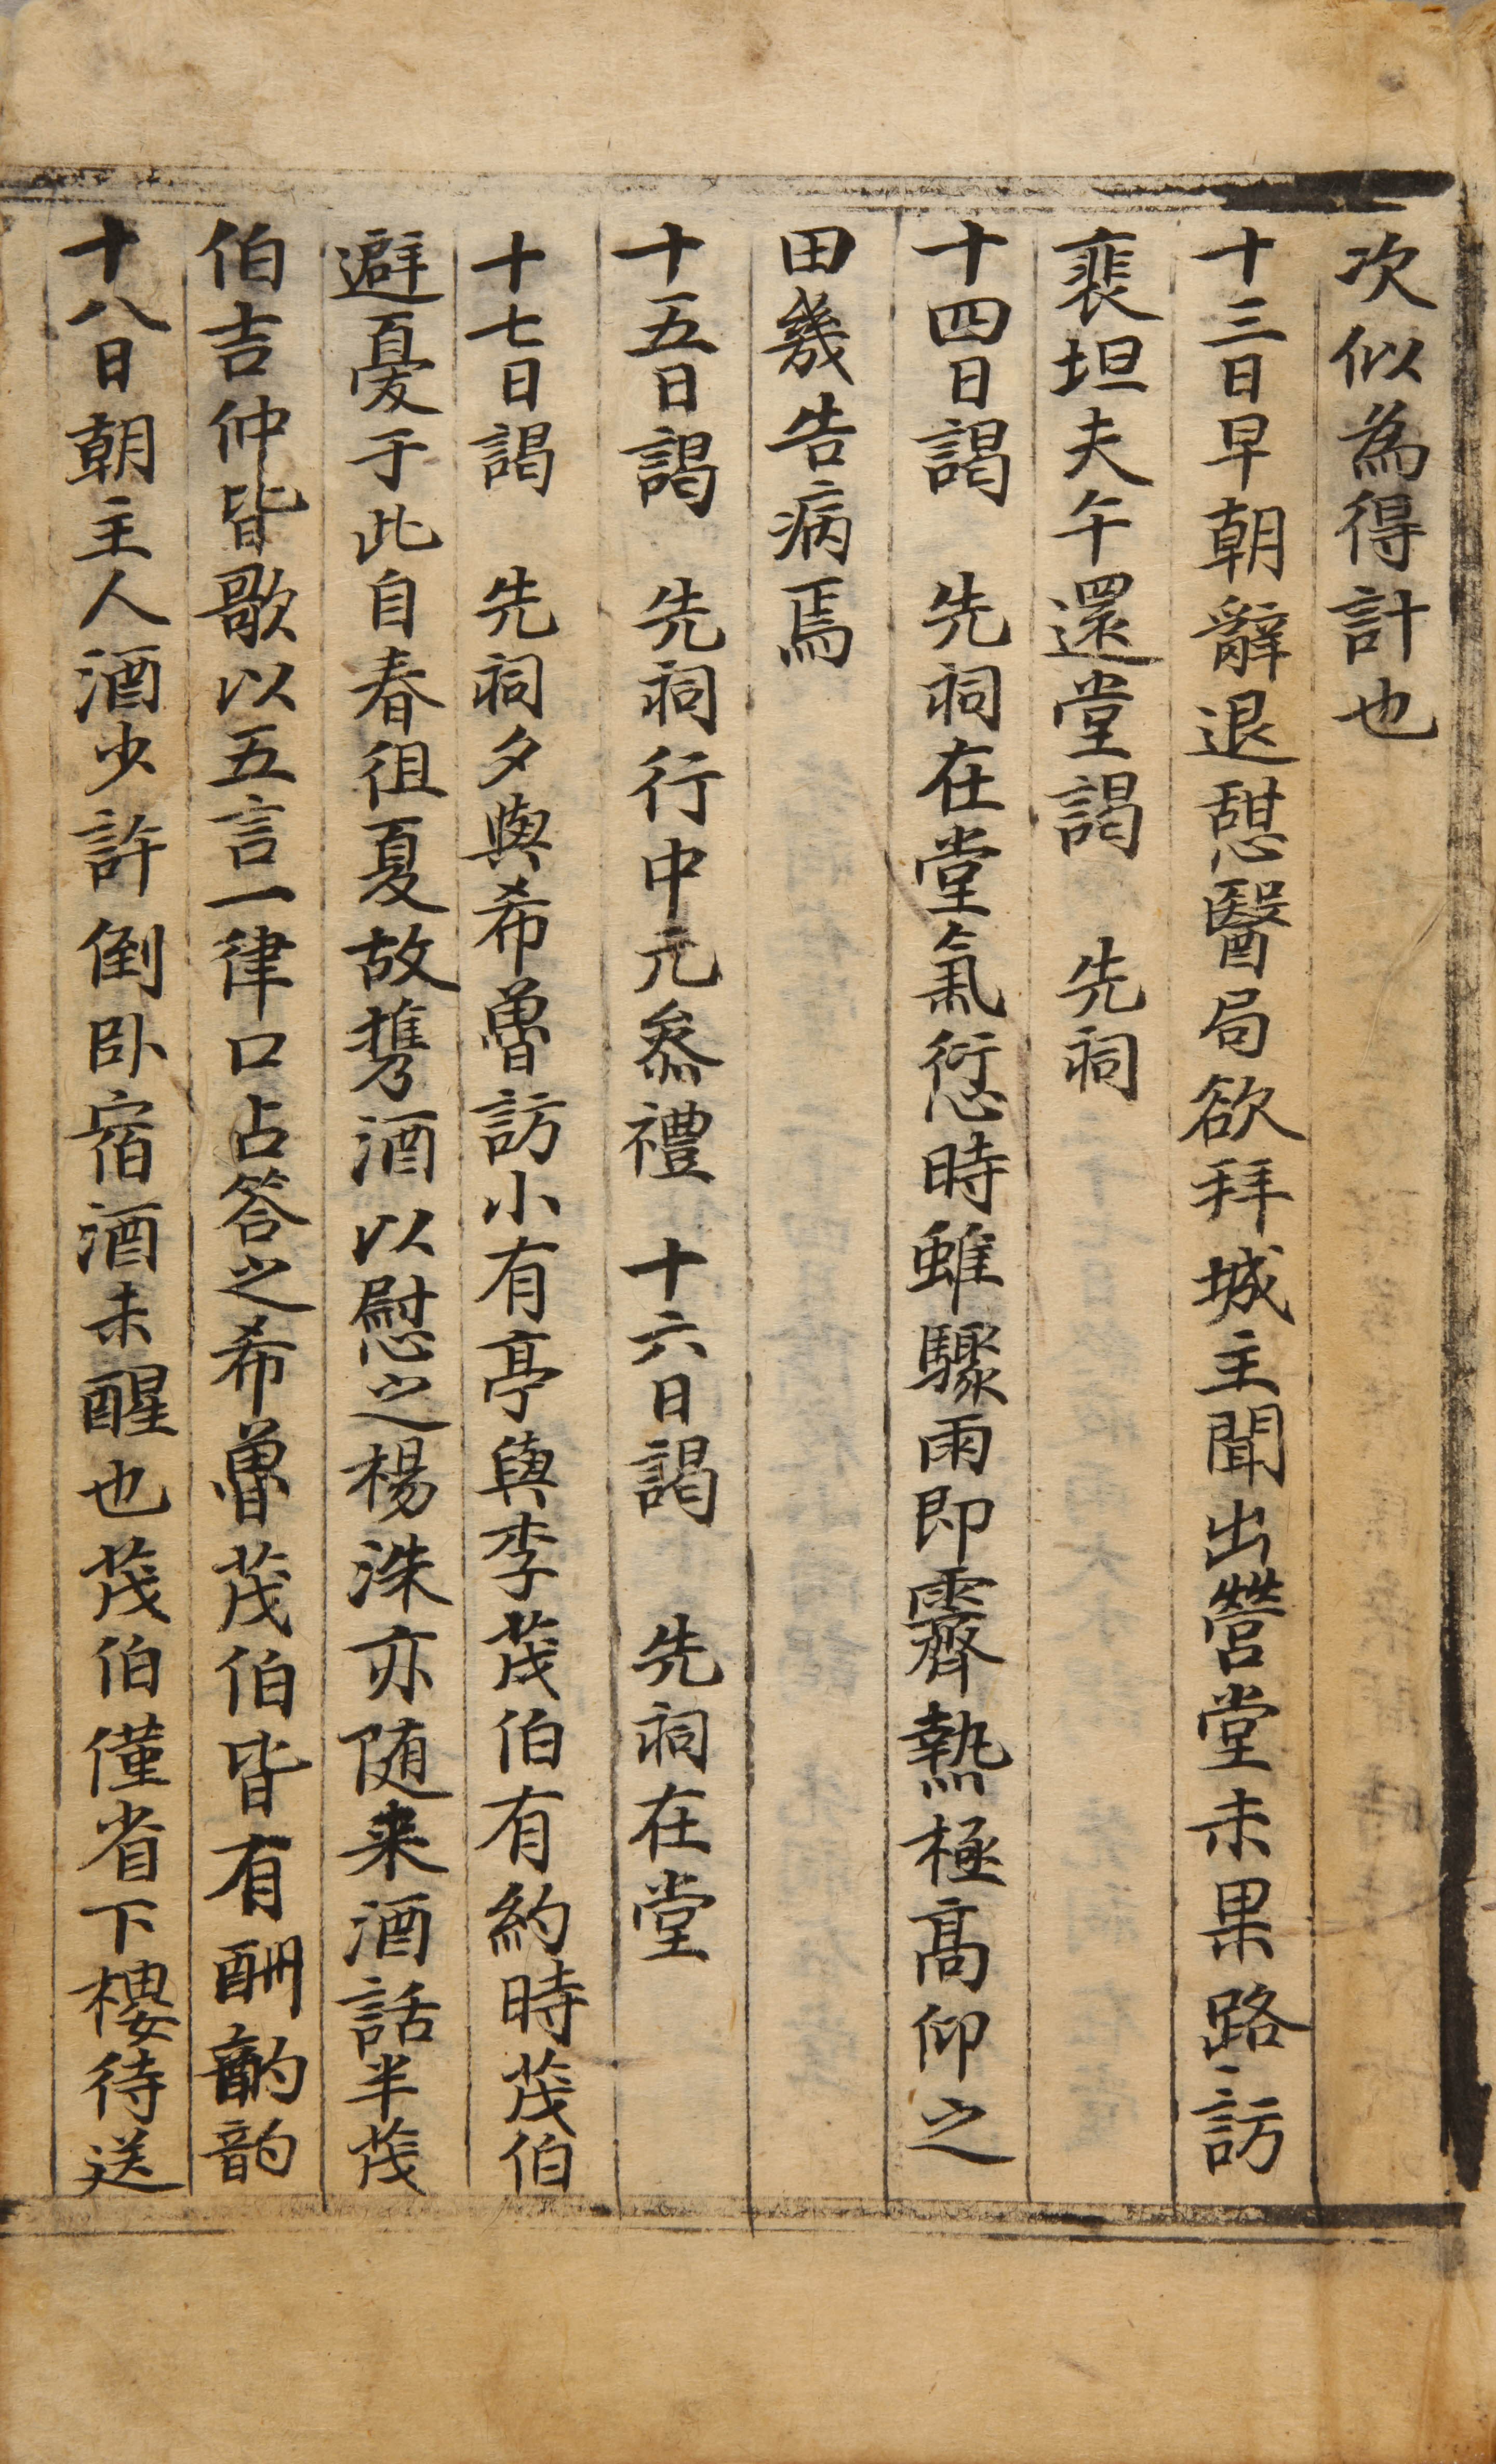 次似為得計也
十三日早朝辭退憇醫局欲拜城主聞出營堂未果路訪
裵坦夫午還堂謁　先祠
十四日謁　先祠在堂氣愆時雖驟雨即霽熱極高仰之
田幾告病焉
十五日謁　先祠行中元叅禮　十六日謁　先祠在堂
十七日謁　先祠夕與希魯訪小有亭與李茂伯有約時茂伯
避憂于此自春徂夏故携酒以慰之楊洙亦随来酒話半茂
伯吉仲皆歌以五言一律口占答之希魯茂伯皆有酬韵
十八日朝主人酒少許倒卧宿酒未醒也茂伯僅省下樓待送